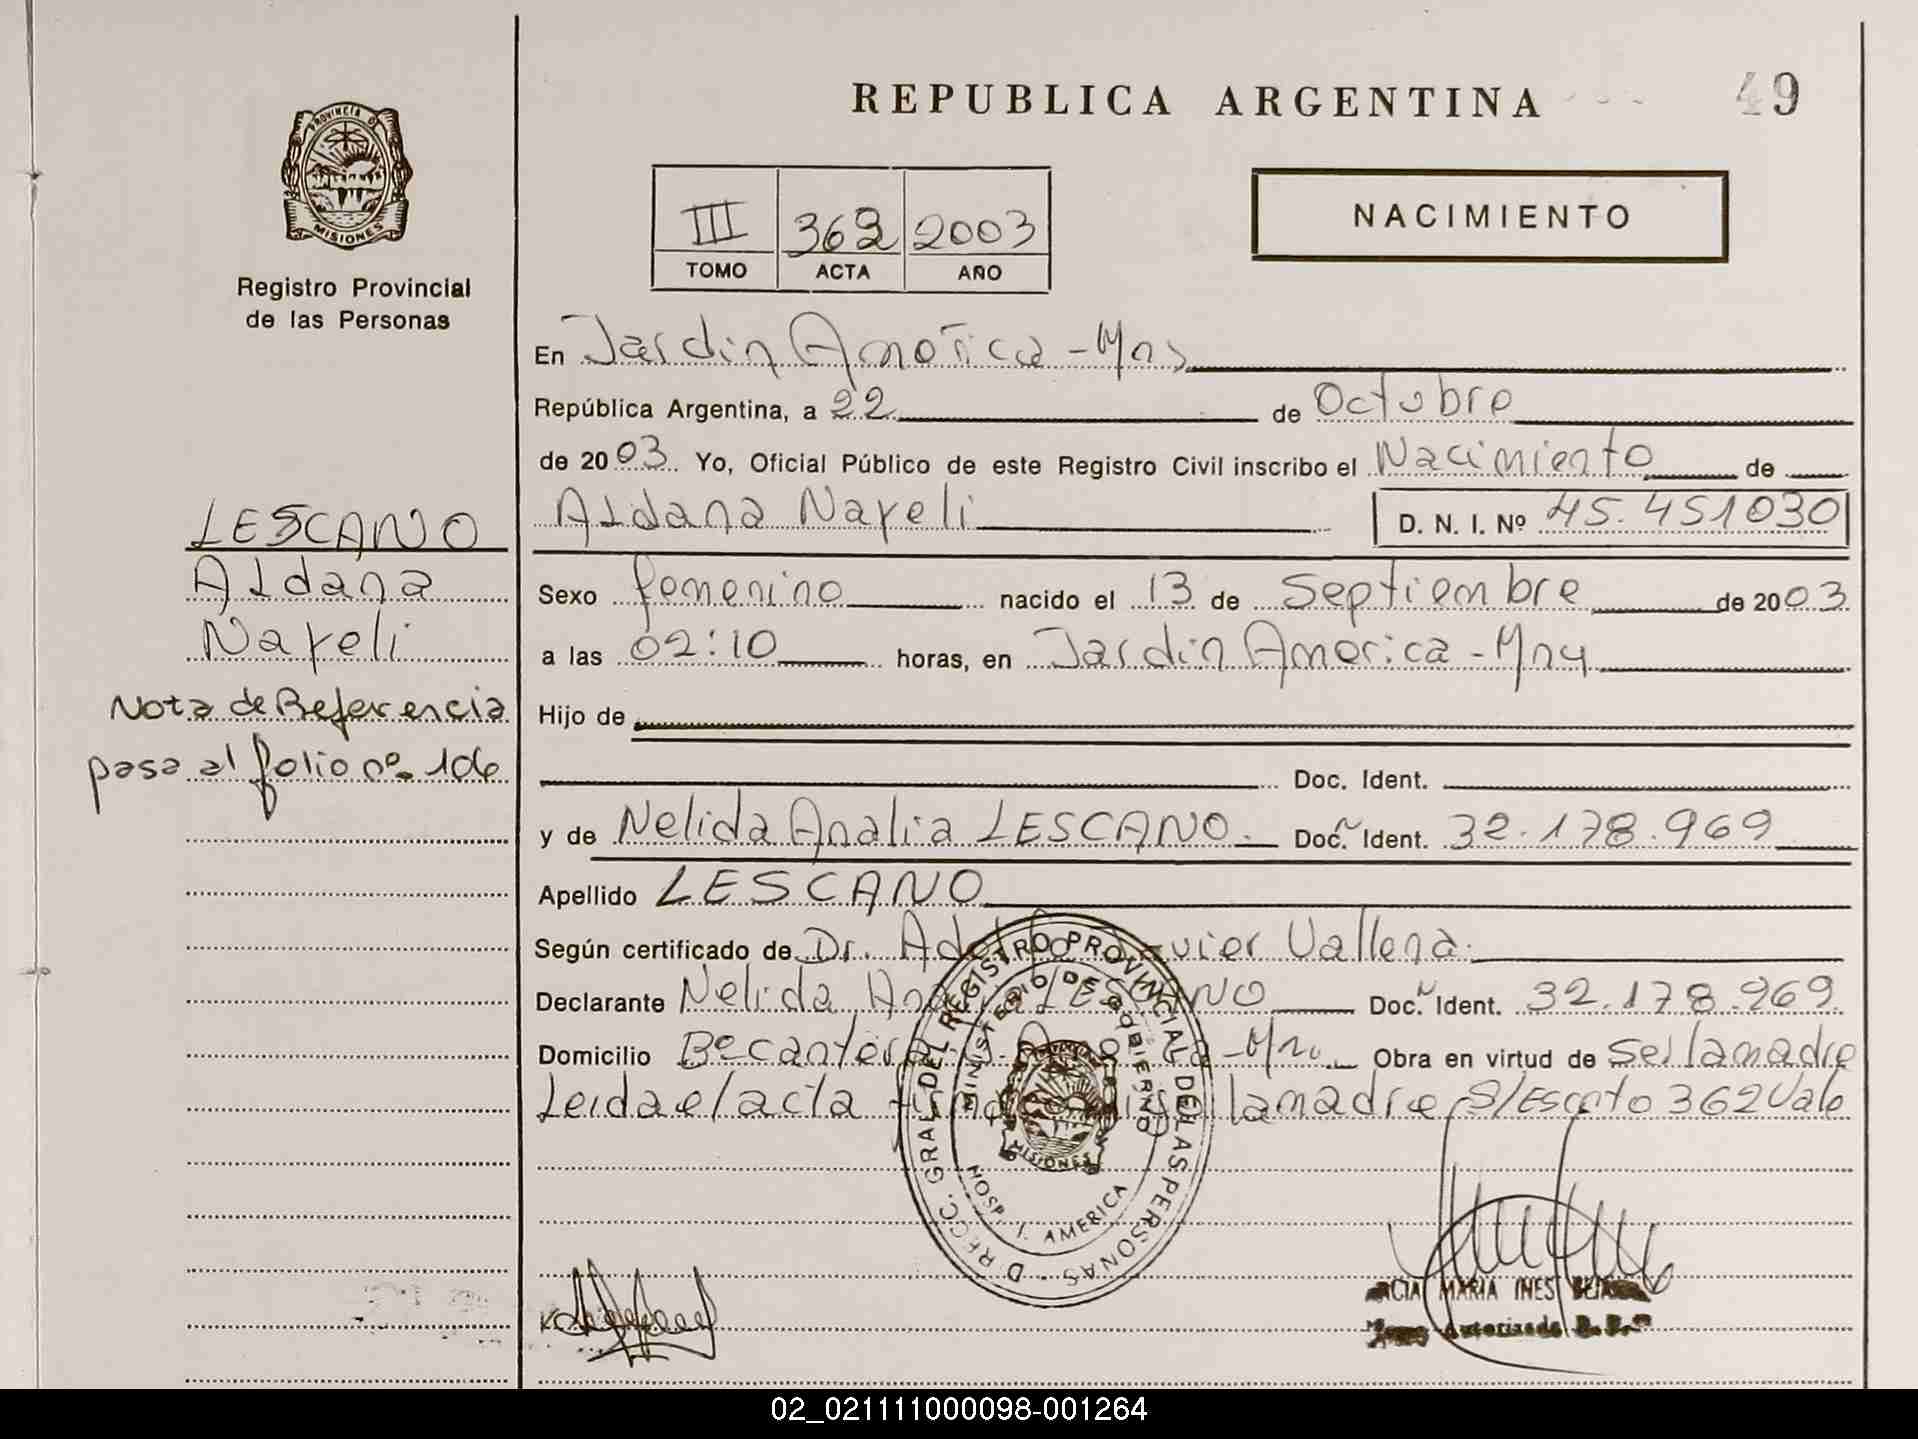 REPUBLICA ARGENTINA
49
PROVINCIA DE
MISIONES
Registro Provincial
de las Personas
III 362 2003
TOMO ACTA AÑO
NACIMIENTO
En Jardin América - Mns
República Argentina, a 22 de Octubre
de 2003 Yo, Oficial Público de este Registro Civil inscribo el Nacimiento de
Aldana Nayeli D. N. I. Nº 45.451030
LESCANO
Aldana
Nayeli
Nota de Referencia
pasa al folio nº 106
Sexo femenino nacido el 13 de Septiembre de 2003
a las 02:10 horas, en Jardin America - Mns
Hijo de
Doc. Ident.
y de Nelida Analia LESCANO. Doc. Ident. 32.178.969
Apellido LESCANO
Según certificado de Dr. Javier Vallena.
Declarante Nelida LESCANO Doc. Ident. 32.178.969
Domicilio Bº Cantera - Mns Obra en virtud de ser la madre
Leida el acta la madre S/ 362 Vale
DIRECC. GRAL DEL REGISTRO PROVINCIAL DE LAS PERSONAS
MINISTERIO DE GOBIERNO
MISIONES
HOSP. J. AMERICA
MARIA INES
Autorizado
02_021111000098-001264